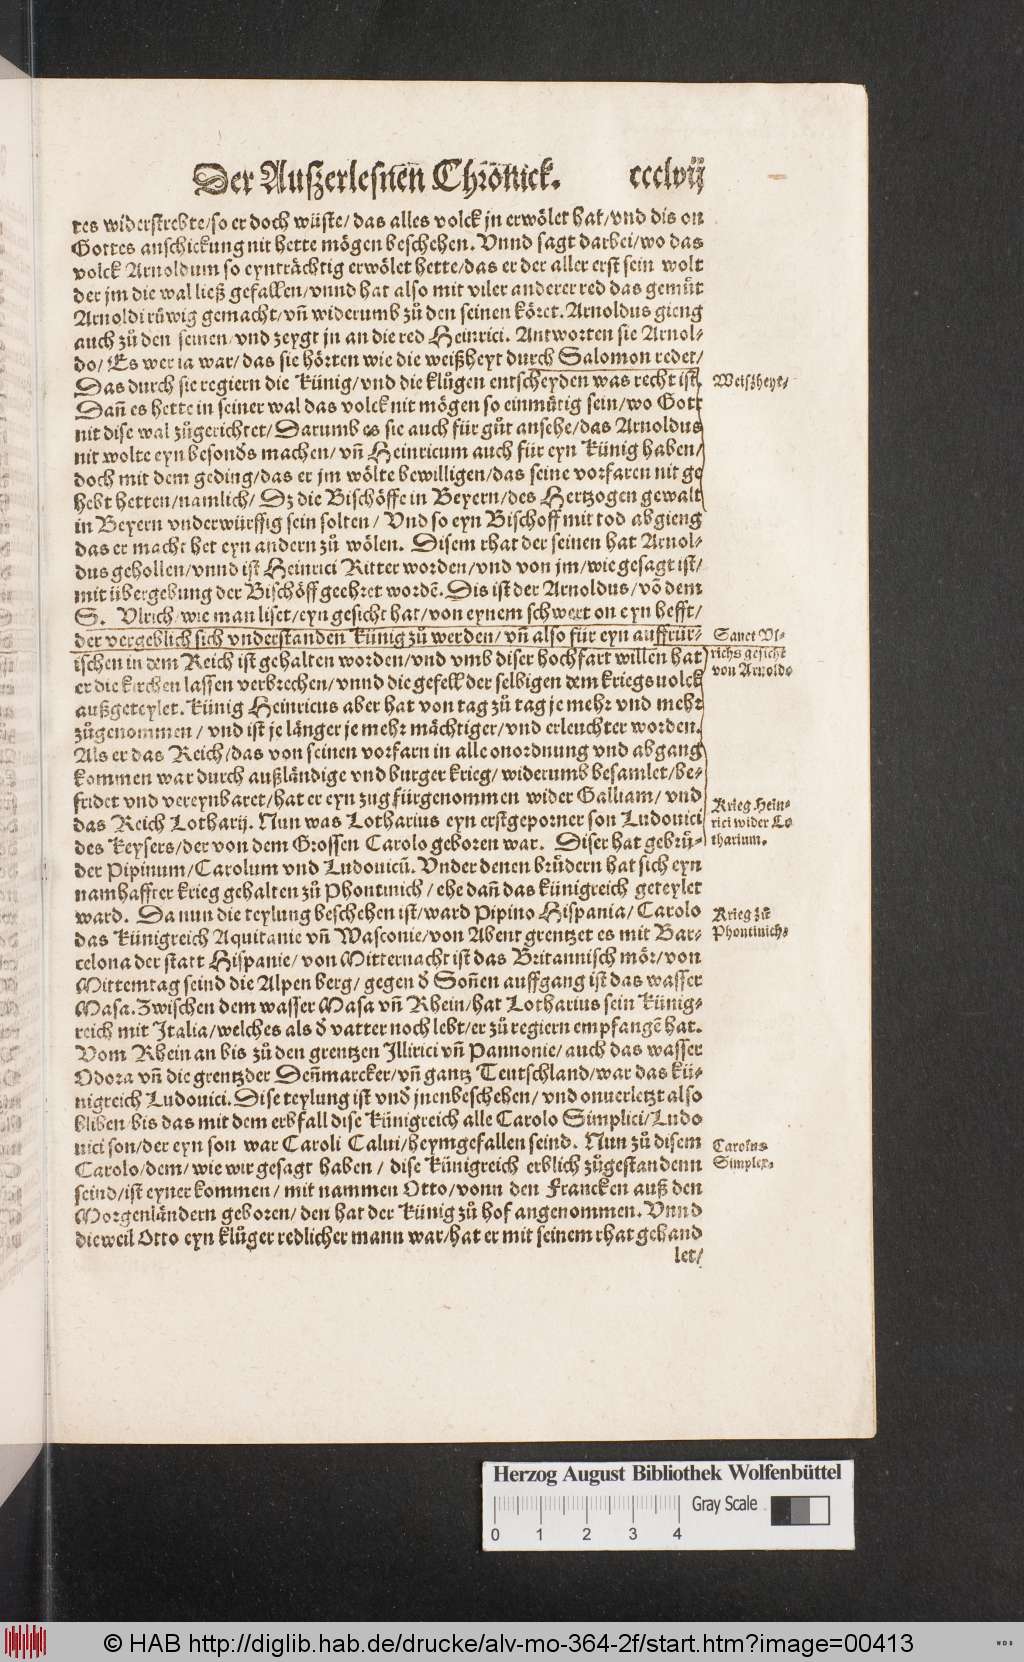 Der Außerlesnen̄ Chrōnick. ccclvij
tes widerstrebte/so er doch wüste/ das alles volck jn erwölet hat/vnd dis on
Gottes anschickung nit hette mögen beschehen. Vnnd sagt darbei/wo das
volck Arnoldum so eynträchtig erwölet hette/das er der aller erst sein wolt
der jm die wal ließ gefallen/vnnd hat also mit viler anderer red das gemuͤt
Arnoldi ruͤwig gemacht/vñ widerumb zuͦ den seinen köret. Arnoldus gieng
auch zuͦ den seinen/vnd zeygt jn an die red Heinrici. Antworten sie Arnol-
do/ Es wer ia war/das sie hörten wie die weißheyt durch Salomon redet/
Das durch sie regiern die Künig/vnd die kluͦgen entscheyden was recht ist.
Weißheyt/
Dañ es hette in seiner wal das volck nit mögen so einmuͤtig sein/wo Gott
nit dise wal zuͦgerichtet/Darumb es sie auch für guͦt ansehe/das Arnoldus
nit wolte eyn besonds machen/vñ Heinricum auch für eyn Künig haben/
doch mit dem geding/das er jm wölte bewilligen/das seine vorfaren nit ge
hebt hetten/namlich/ Dz die Bischöffe in Beyern/des Hertzogen gewalt
in Beyern vnderwürffig sein solten/ Vnd so eyn Bischoff mit tod abgieng
das er macht het eyn andern zuͦ wölen. Disem rhat der seinen hat Arnol-
dus gehollen/vnnd ist Heinrici Ritter worden/vnd von jm/wie gesagt ist/
mit übergebung der Bischöff geehret wordẽ. Dis ist der Arnoldus/võ dem
S. Vlrich/wie man liset/eyn gesicht hat/von eynem schwert on eyn hefft/
der vergeblich sich vnderstanden Künig zuͦ werden/vñ also für eyn auffruͤr-
Sanct Vl-
richs gesicht
von Arnoldo
ischen in dem Reich ist gehalten worden/vnd vmb diser hochfart willen hat
er die kirchen lassen verbrechen/vnnd die gefell der selbigen dem kriegsuolck
außgeteylet. Künig Heinricus aber hat von tag zuͦ tag je mehr vnd mehr
zuͦgenommen/ vnd ist je länger je mehr mächtiger/vnd erleuchter worden.
Als er das Reich/das von seinen vorfarn in alle onordnung vnd abgang
kommen war durch außländige vnd burger krieg/widerumb besamlet/be-
fridet vnd vereynbaret/hat er eyn zug fürgenommen wider Galliam/ vnd
das Reich Lotharij. Nun was Lotharius eyn erstgeporner son Ludouici
des Keysers/der von dem Grossen Carolo geboren war. Diser hat gebruͤ-
Krieg Hein-
rici wider Lo
tharium.
der Pipinum/Carolum vnd Ludouicũ. Vnder denen bruͤdern hat sich eyn
namhaffter krieg gehalten zuͦ Phontinich/ ehe dañ das künigreich geteylet
ward. Da nun die teylung beschehen ist/ward Pipino Hispania/ Carolo
Krieg zuͦ
Phontinich.
das Künigreich Aquitanie vñ Wasconie/von Abent grentzet es mit Bar-
celona der statt Hispanie/ von Mitternacht ist das Britannisch mör/von
Mittemtag seind die Alpen berg/gegen d Soñen auffgang ist das wasser
Masa. Zwischen dem wasser Masa vñ Rhein/hat Lotharius sein Künig-
reich mit Italia/welches als d vatter noch lebt/er zuͦ regiern empfangẽ hat.
Vom Rhein an bis zuͦ den grentzen Illirici vñ Pannonie/auch das wasser
Odora vñ die grentz der Deñmarcker/vñ gantz Teutschland/war das kü-
nigreich Ludouici. Dise teylung ist vnd jnen beschehen/ vnd onuerletzt also
bliben/bis das mit dem erbfall dise Künigreich alle Carolo Simplici/Ludo
uici son/der eyn son war Caroli Calui/heymgefallen seind. Nun zuͦ disem
Carolus
Simplex.
Carolo/dem/wie wir gesagt haben/ dise Künigreich erblich zuͦgestandenn
seind/ist eyner kommen/ mit nammen Otto/vonn den Francken auß den
Morgenländern geboren/den hat der Künig zuͦ hof angenommen. Vnnd
dieweil Otto eyn kluͦger redlicher mann war/hat er mit seinem rhat gehand
let/
Herzog August Bibliothek Wolfenbüttel
Gray Scale
0 1 2 3 4
© HAB http://diglib.hab.de/drucke/alv-mo-364-2f/start.htm?image=00413